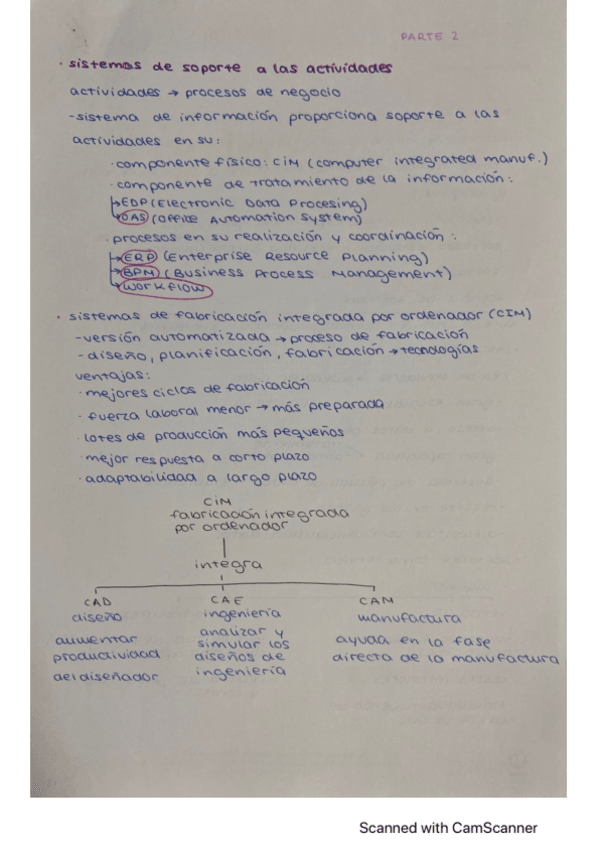 PARTE 2
· sistemas de soporte a las actividades
actividades → procesos de negocio
- sistema de información proporciona soporte a las
actividades en su:
· componente físico: CiM (computer integrated manuf.)
· componente de tratamiento de la información:
→ EDP (Electronic Data Procesing)
→ OAS (Office Automation System)
· procesos en su realización y coordinación:
→ ERP (Enterprise Resource Planning)
→ BPM (Business Process Management)
→ workflow
· sistemas de fabricación integrada por ordenador (CIM)
- versión automatizada → proceso de fabricación
- diseño, planificación, fabricación → tecnologías
ventajas:
· mejores ciclos de fabricación
· fuerza laboral menor → más preparada
· lotes de producción más pequeños
· mejor respuesta a corto plazo
· adaptabilidad a largo plazo
CiM
fabricación integrada
por ordenador
integra
CAD CAE CAM
diseño ingeniería manufactura
aumentar analizar y ayuda en la fase
productividad simular los directa de la manufactura
del diseñador diseños de
ingeniería
Scanned with CamScanner